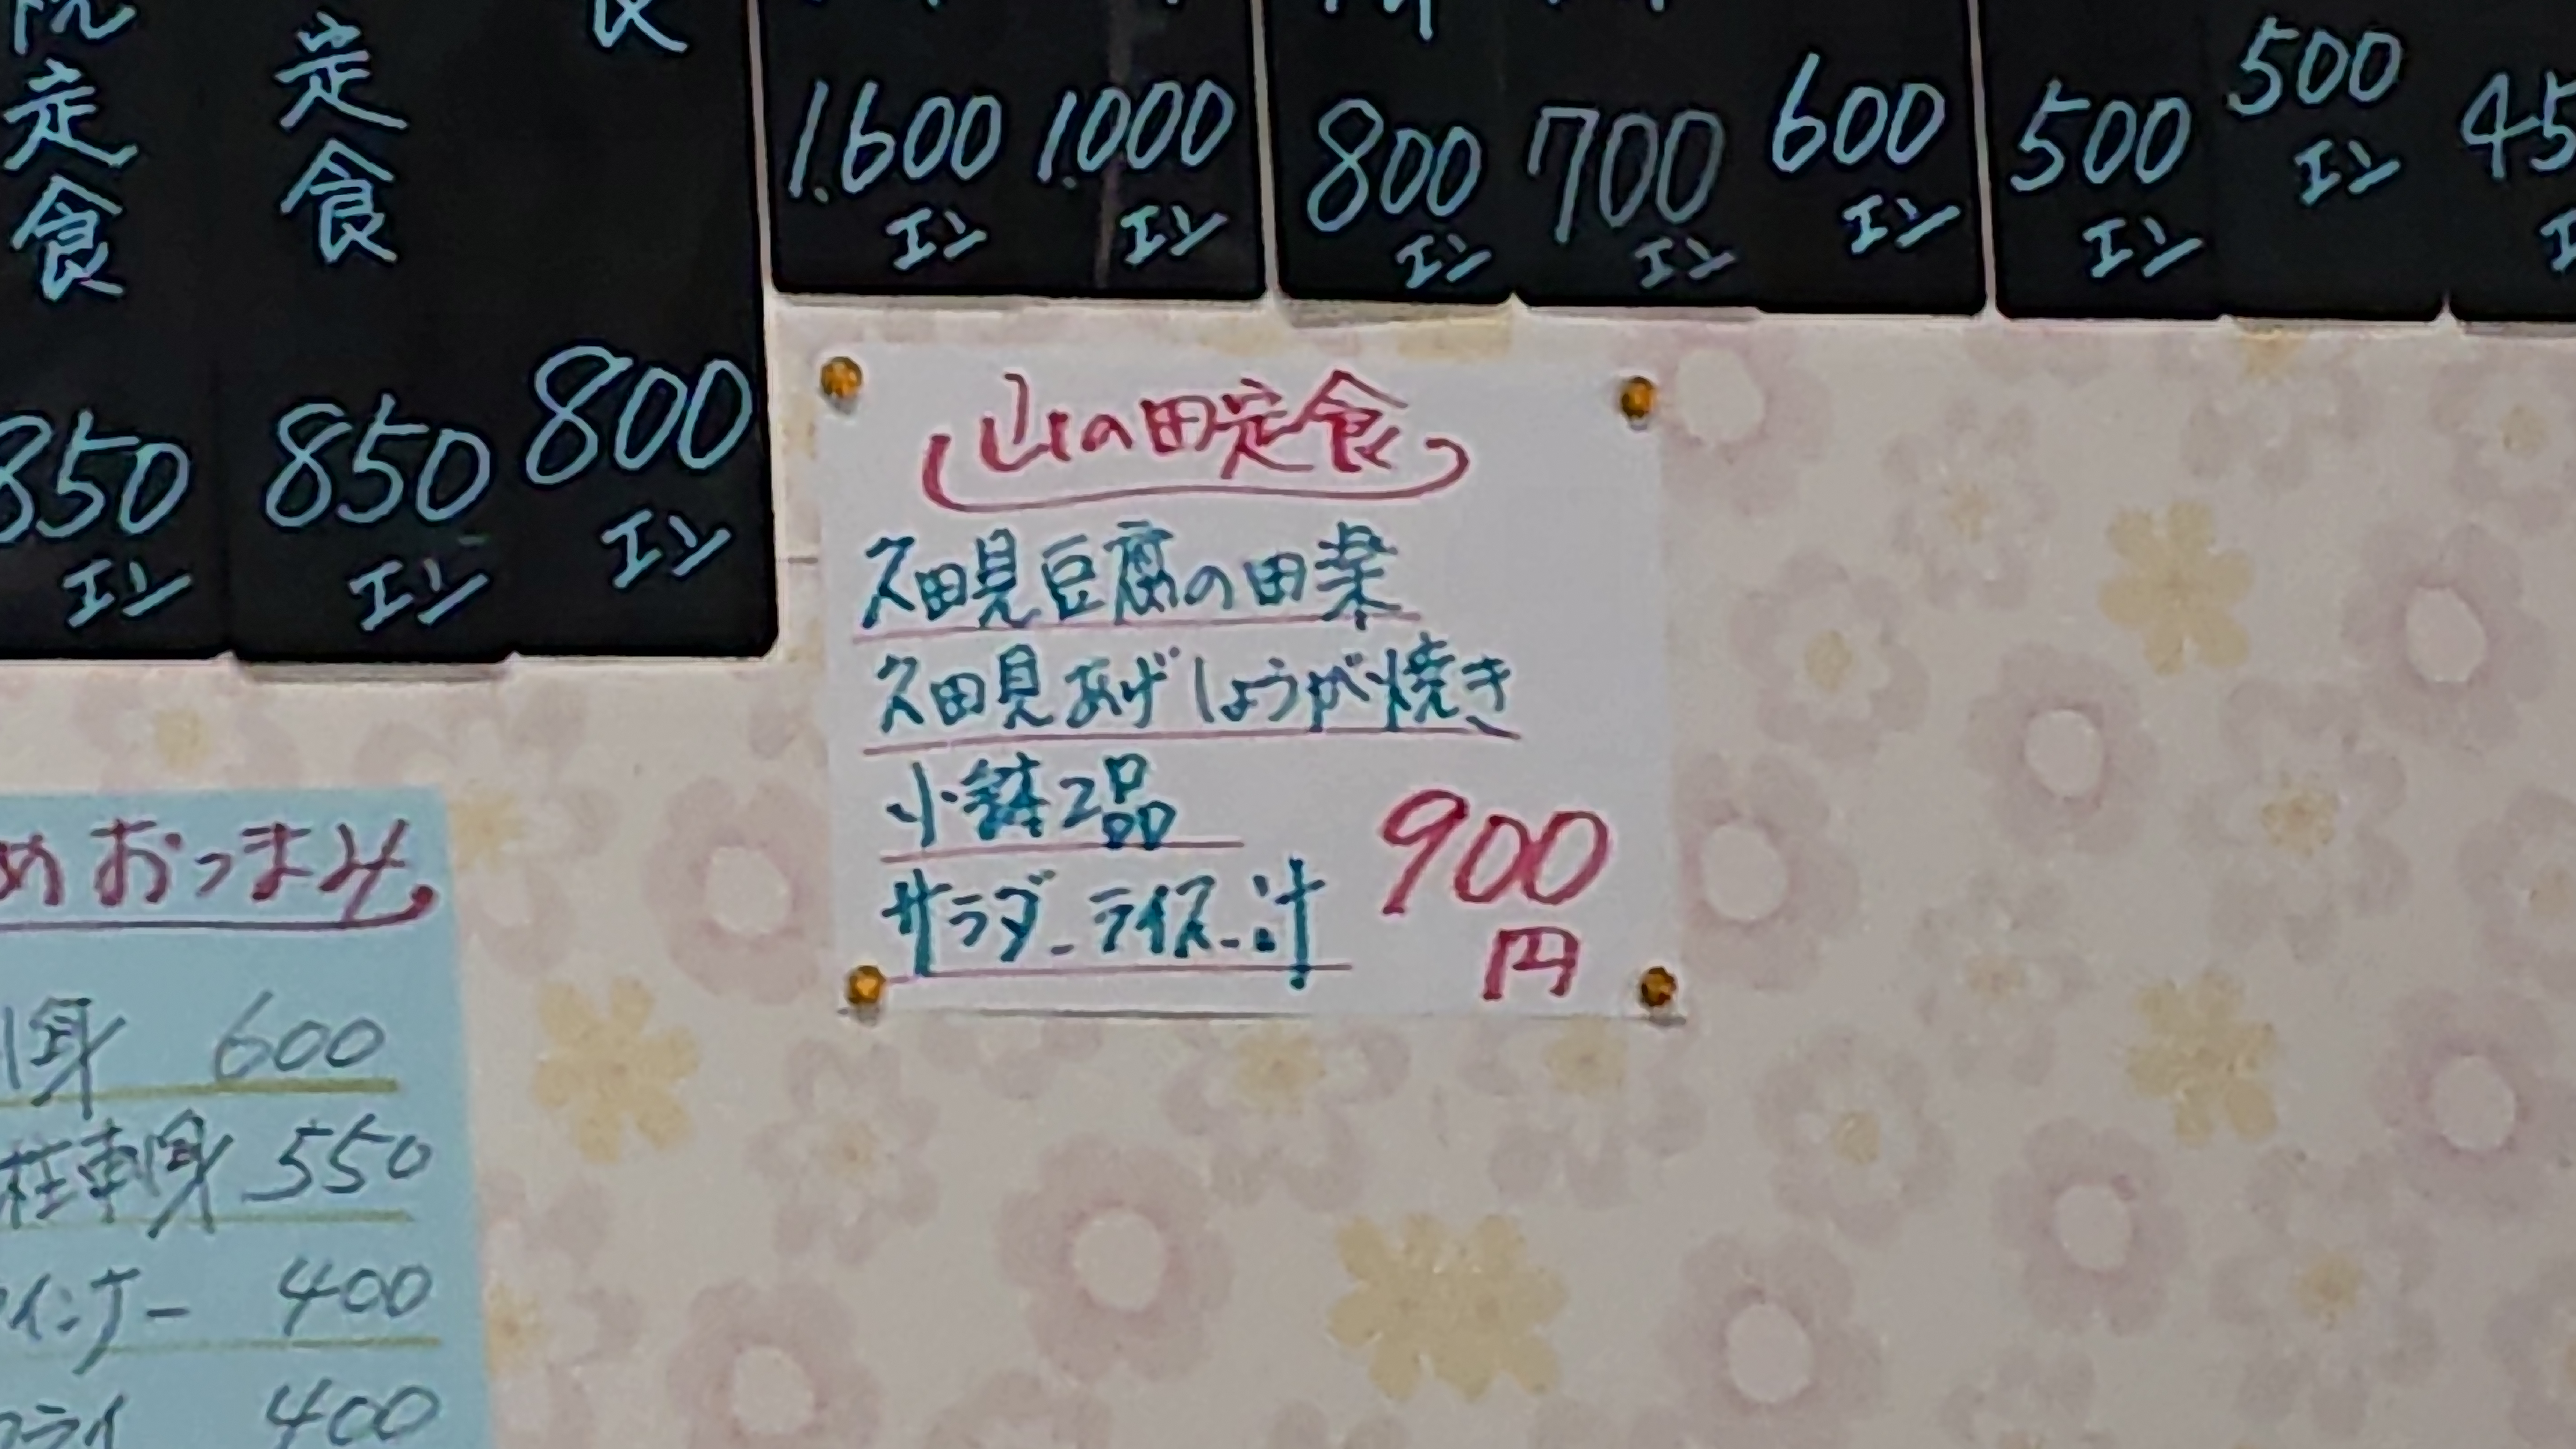 定食
定食
850
エン
850
エン
800
エン
1.600
エン
1.000
エン
800
エン
700
エン
600
エン
500
エン
500
エン
45
山の田定食
久田見豆腐の田楽
久田見あげしょうが焼き
小鉢2品
サラダ-ライス-汁
900
円
めおつまみ
身 600
柱刺身 550
インナー 400
フライ 400